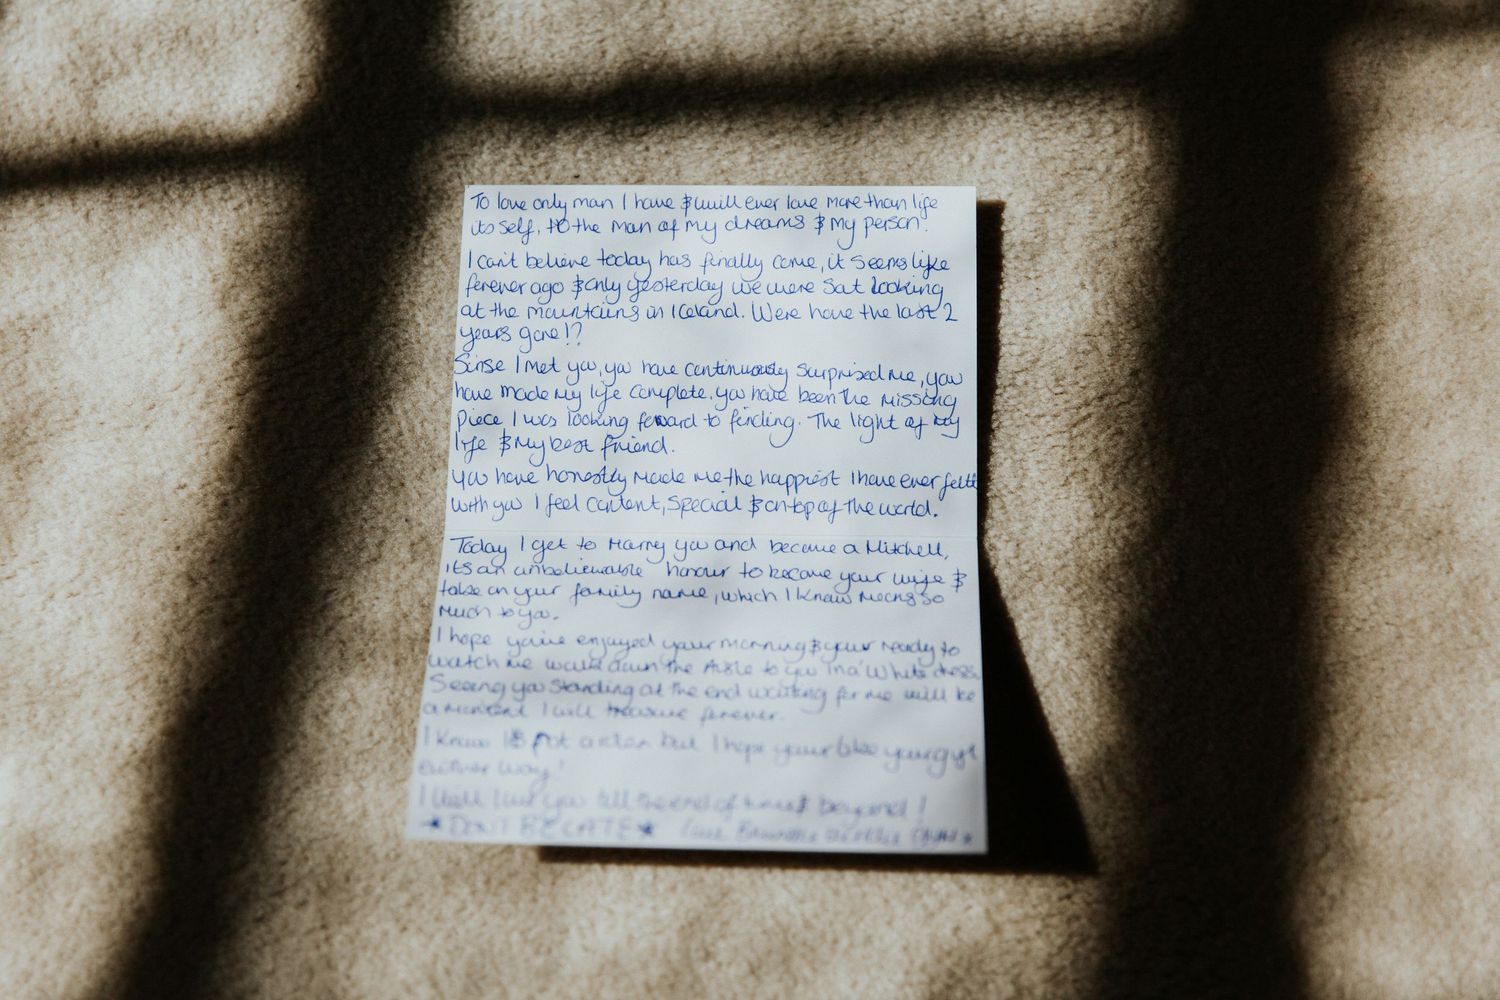 To love only man I have & will ever love more than life
its self, to the man of my dreams & my person.
I can't believe today has finally come, it seems like
forever ago & only yesterday we were Sat looking
at the mountains in Iceland. Were have the last 2
years gone!?
Sinse I met you, you have continuously surprised me, you
have made my life complete, you have been the missing
piece I was looking foward to finding. The light of my
life & my best friend.
You have honestly made me the happiest I have ever felt
with you I feel content, special & on top of the world.
Today I get to marry you and become a Mitchell,
its an unbelievable honour to become your wife &
take on your family name, which I know means so
much to you.
I hope you've enjoyed your morning & your ready to
watch me walk down the Aisle to you in a White dress.
Seeing you standing at the end waiting for me will be
a moment I will treasure forever.
I know but I hope your like your gift
either way!
I will love you till the end of time & beyond!
★DON'T BE LATE★ love